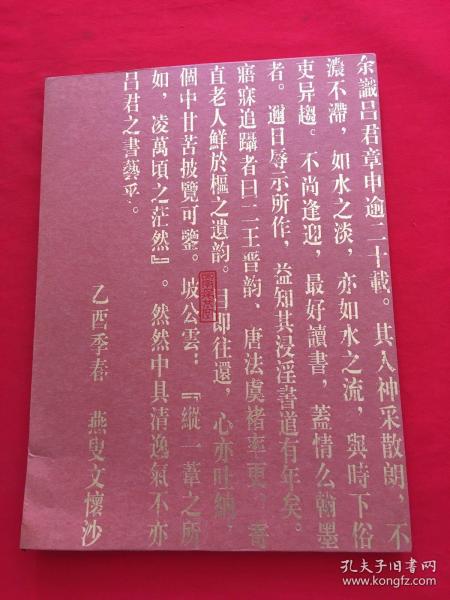 余識吕君章申逾二十載。其人神采散朗，不
濃不滯，如水之淡，亦如水之流，與時下俗
吏异趨。不尚逢迎，最好讀書，蓋情幺翰墨
者。邇日辱示所作，益知其浸淫書道有年矣。
寤寐追躡者曰二王晋韵、唐法虞褚率更，
直老人鮮於樞之遺韵。目即往還，心亦吐納，
個中甘苦披覽可鑒。坡公雲：『縱一葦之所
如，凌萬頃之茫然』。然然中具清逸氣不亦
吕君之書藝乎。
乙酉季春 燕叟文懷沙
孔夫子旧书网
www.kongfz.com